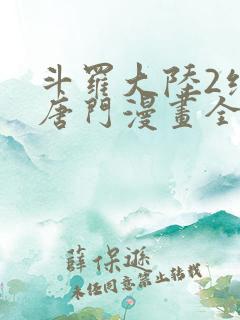 斗羅大陸2
唐門漫畫全
薛保遜
未经同意禁止转载